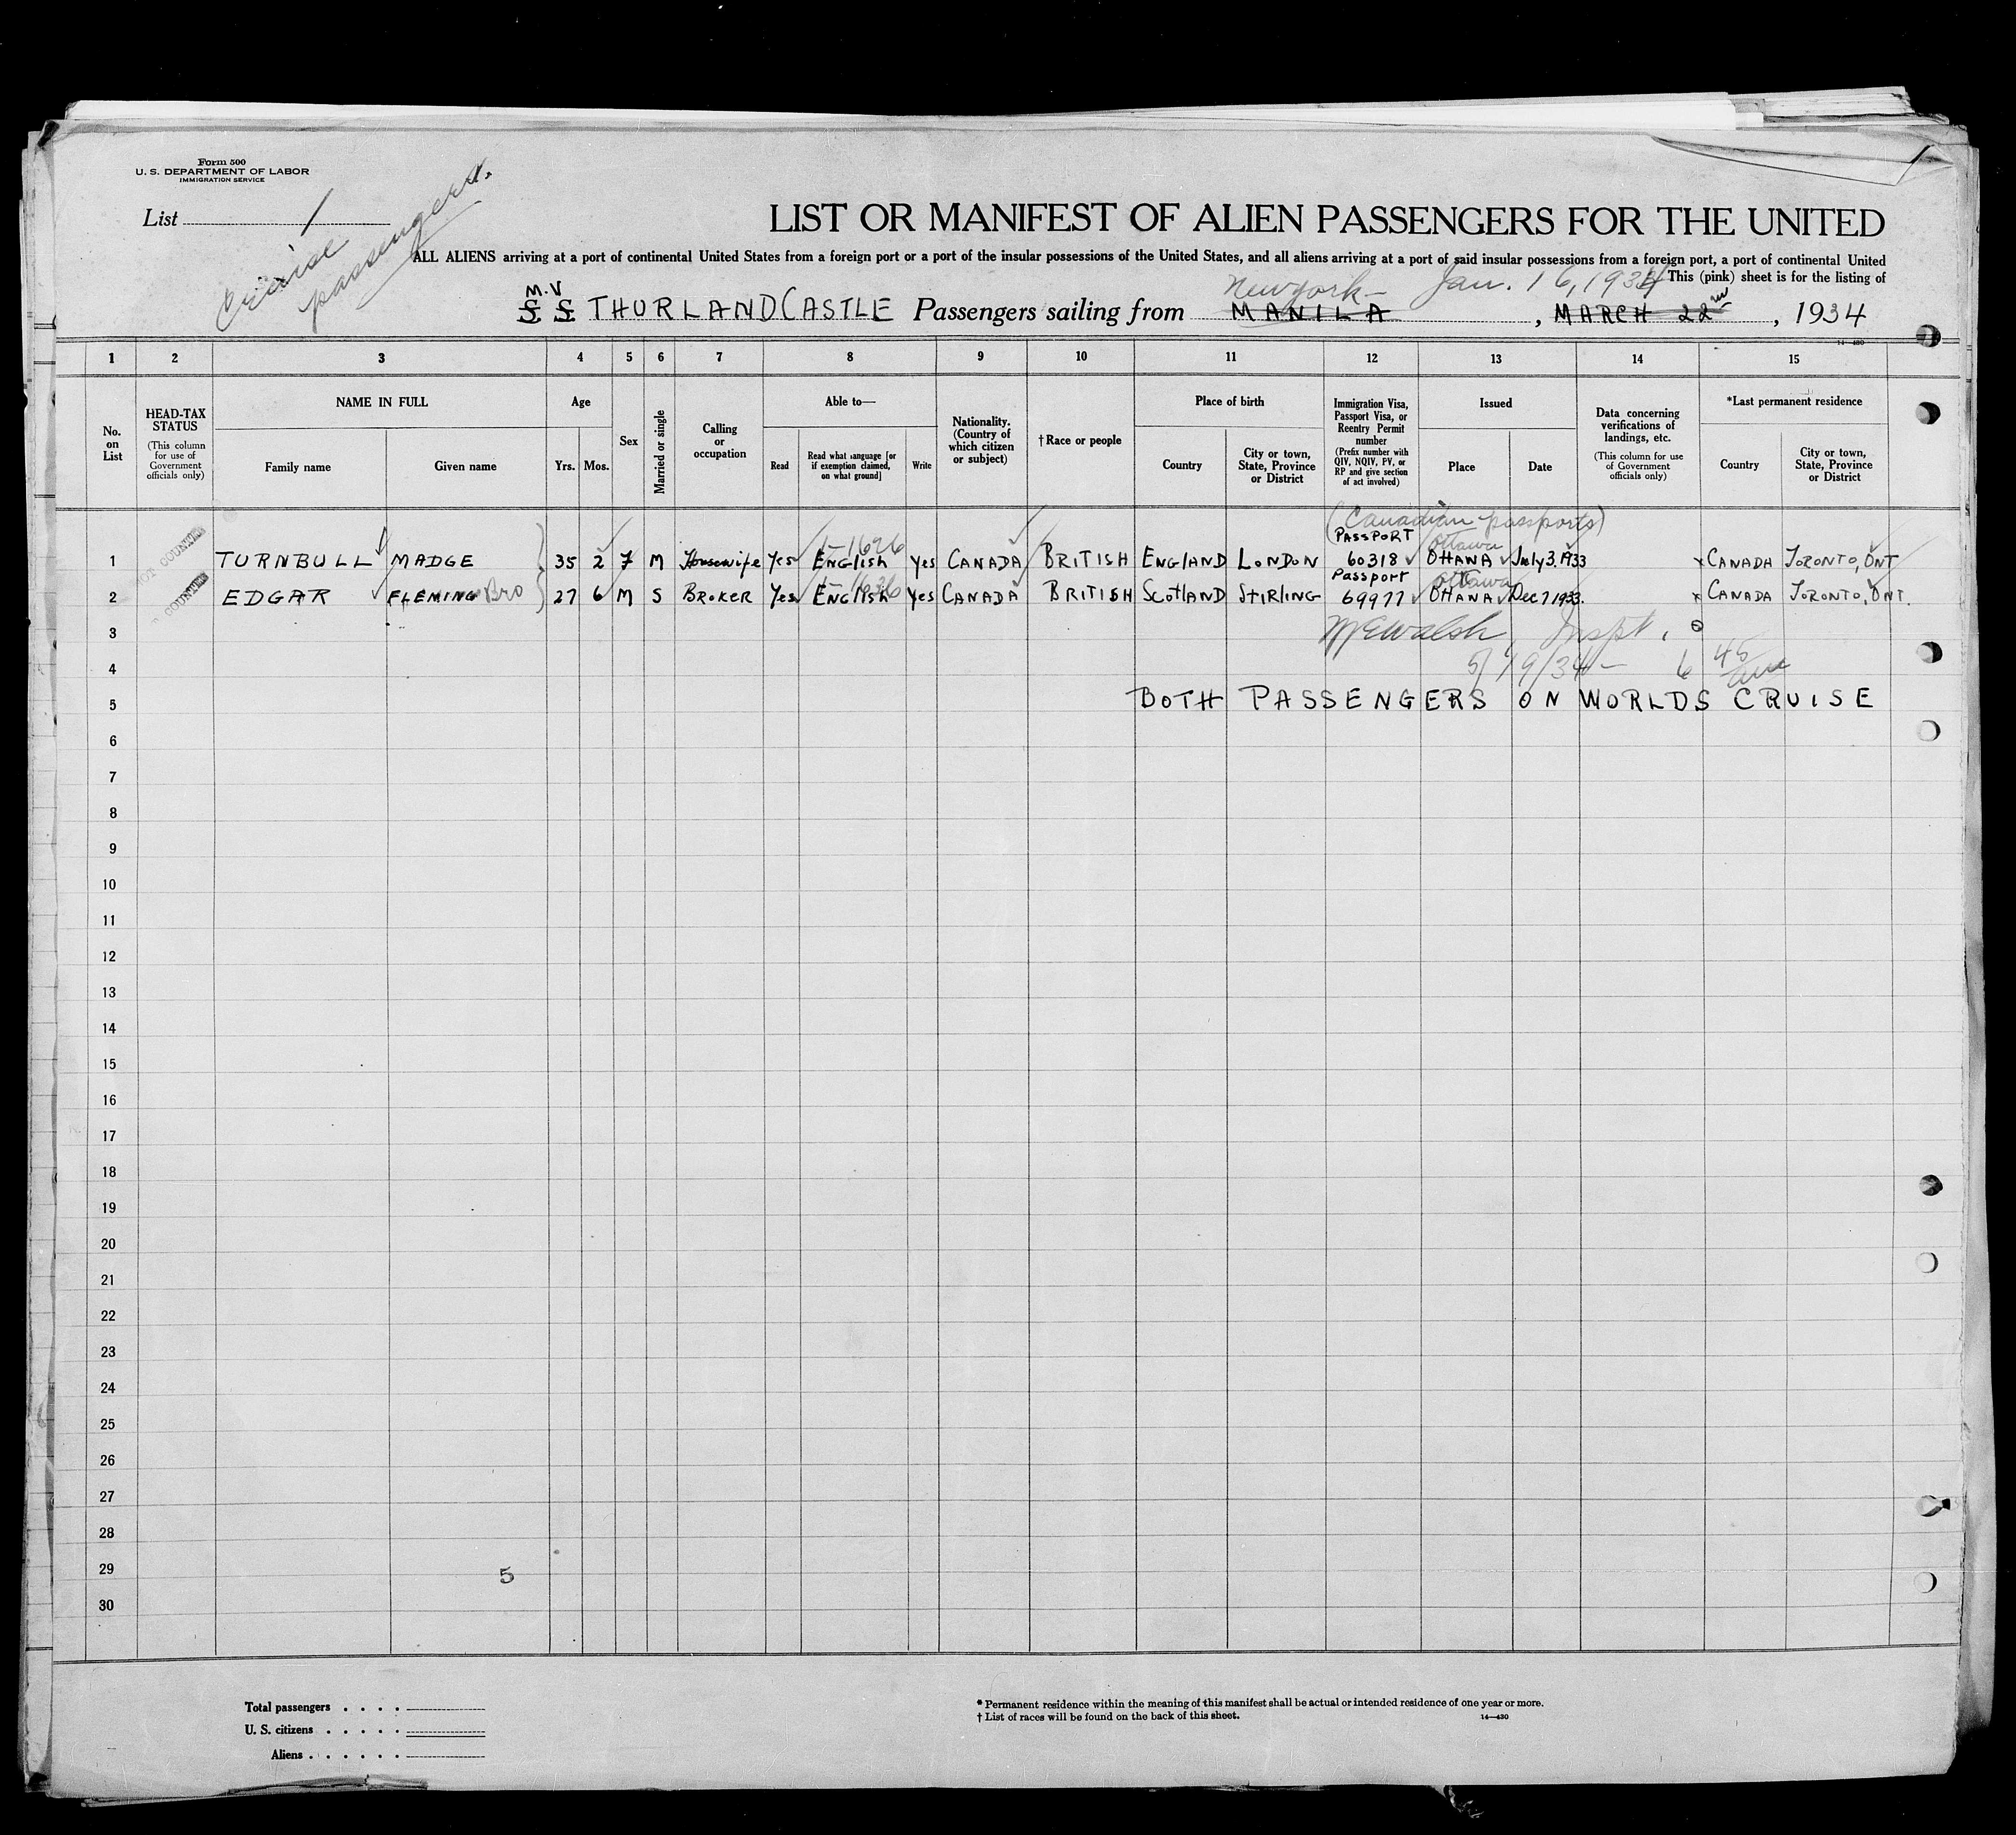 Form 500
U. S. DEPARTMENT OF LABOR
IMMIGRATION SERVICE
List 1
Cruise passengers.
LIST OR MANIFEST OF ALIEN PASSENGERS FOR THE UNITED
ALL ALIENS arriving at a port of continental United States from a foreign port or a port of the insular possessions of the United States, and all aliens arriving at a port of said insular possessions from a foreign port, a port of continental United
This (pink) sheet is for the listing of
New York - Jan. 16, 1934
M.V
S S THURLAND CASTLE Passengers sailing from MANILA, MARCH 22nd, 1934
14-430
1 2 3 4 5 6 7 8 9 10 11 12 13 14 15
No. on List
HEAD-TAX STATUS
(This column for use of Government officials only)
NAME IN FULL
Family name
Given name
Age
Yrs.
Mos.
Sex
Married or single
Calling or occupation
Able to—
Read
Read what language [or if exemption claimed, on what ground]
Write
Nationality. (Country of which citizen or subject)
†Race or people
Place of birth
Country
City or town, State, Province or District
Immigration Visa, Passport Visa, or Reentry Permit number
(Prefix number with QIV, NQIV, PV, or RP and give section of act involved)
Issued
Place
Date
Data concerning verifications of landings, etc.
(This column for use of Government officials only)
*Last permanent residence
Country
City or town, State, Province or District
(Canadian passports)
NOT COUNTED
1-1696 PASSPORT Ottawa
1 TURNBULL MADGE 35 2 F M Housewife Yes English Yes CANADA BRITISH ENGLAND LONDON 60318 OTTAWA July 3. 1933 x CANADA TORONTO, ONT
COUNTED
Passport Ottawa
2 EDGAR FLEMING Bro 27 6 M S BROKER Yes English Yes CANADA BRITISH SCOTLAND STIRLING 69977 OTTAWA Dec 7 1933. x CANADA TORONTO, ONT.
3 Walsh, Inspt.
4 5/19/34 - 6 45 am
5 BOTH PASSENGERS ON WORLDS CRUISE
6
7
8
9
10
11
12
13
14
15
16
17
18
19
20
21
22
23
24
25
26
27
28
29 5
30
Total passengers . . . .
U. S. citizens . . . . .
Aliens . . . . . .
* Permanent residence within the meaning of this manifest shall be actual or intended residence of one year or more.
† List of races will be found on the back of this sheet.
14-430